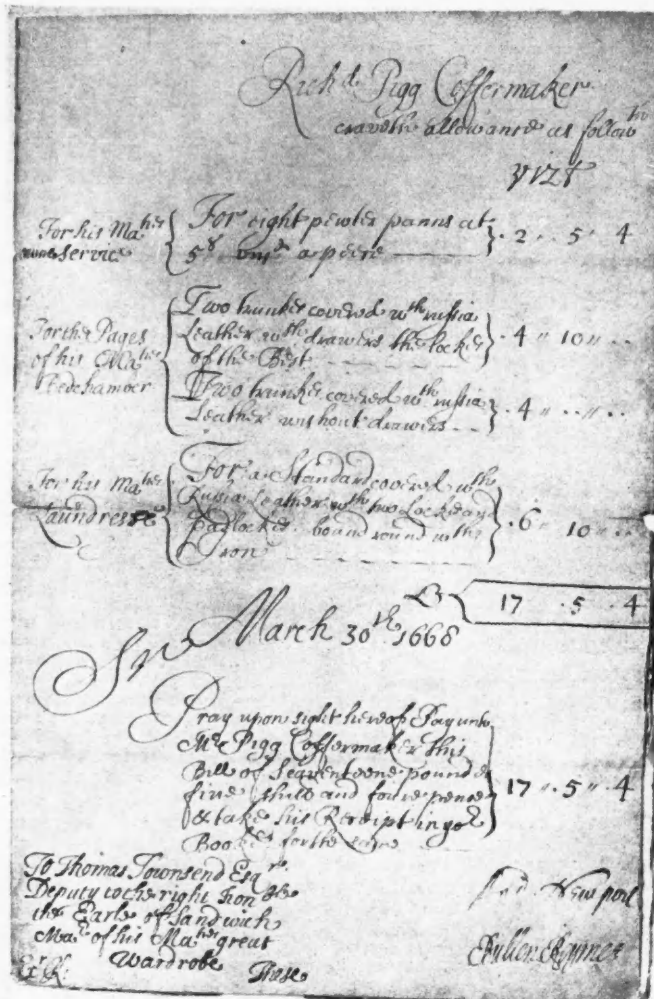 Richd Pigg Coffermaker
craveth allowance as followth
vizt
For his Maties
service
For eight pewter panns at
5s a peece
2 5 4
For the Pages
of his Maties
Bedchamber
Two trunkes covered wth russia
Leather wth drawers the lockes
of the Best
4 10
Two trunkes covered wth russia
Leather without drawers
4
For his Maties
Laundresse
For a Standard covered wth
Russia Leather wth two lockes
Padlockes bound round with
Iron
6 10
17 5 4
March 30th 1668
Sr
Pray upon sight hereof Pay unto
Mr Pigg Coffermaker this
Bill of Seaventeene pounds
five shill and foure pence
& take his Receipt in yor
Bookes for the same
17 5 4
To Thomas Townsend Esqr
Deputy to the right honble
the Earle of Sandwich
Mar of his Maties great
Wardrobe These
Newport
Bullen Reymes